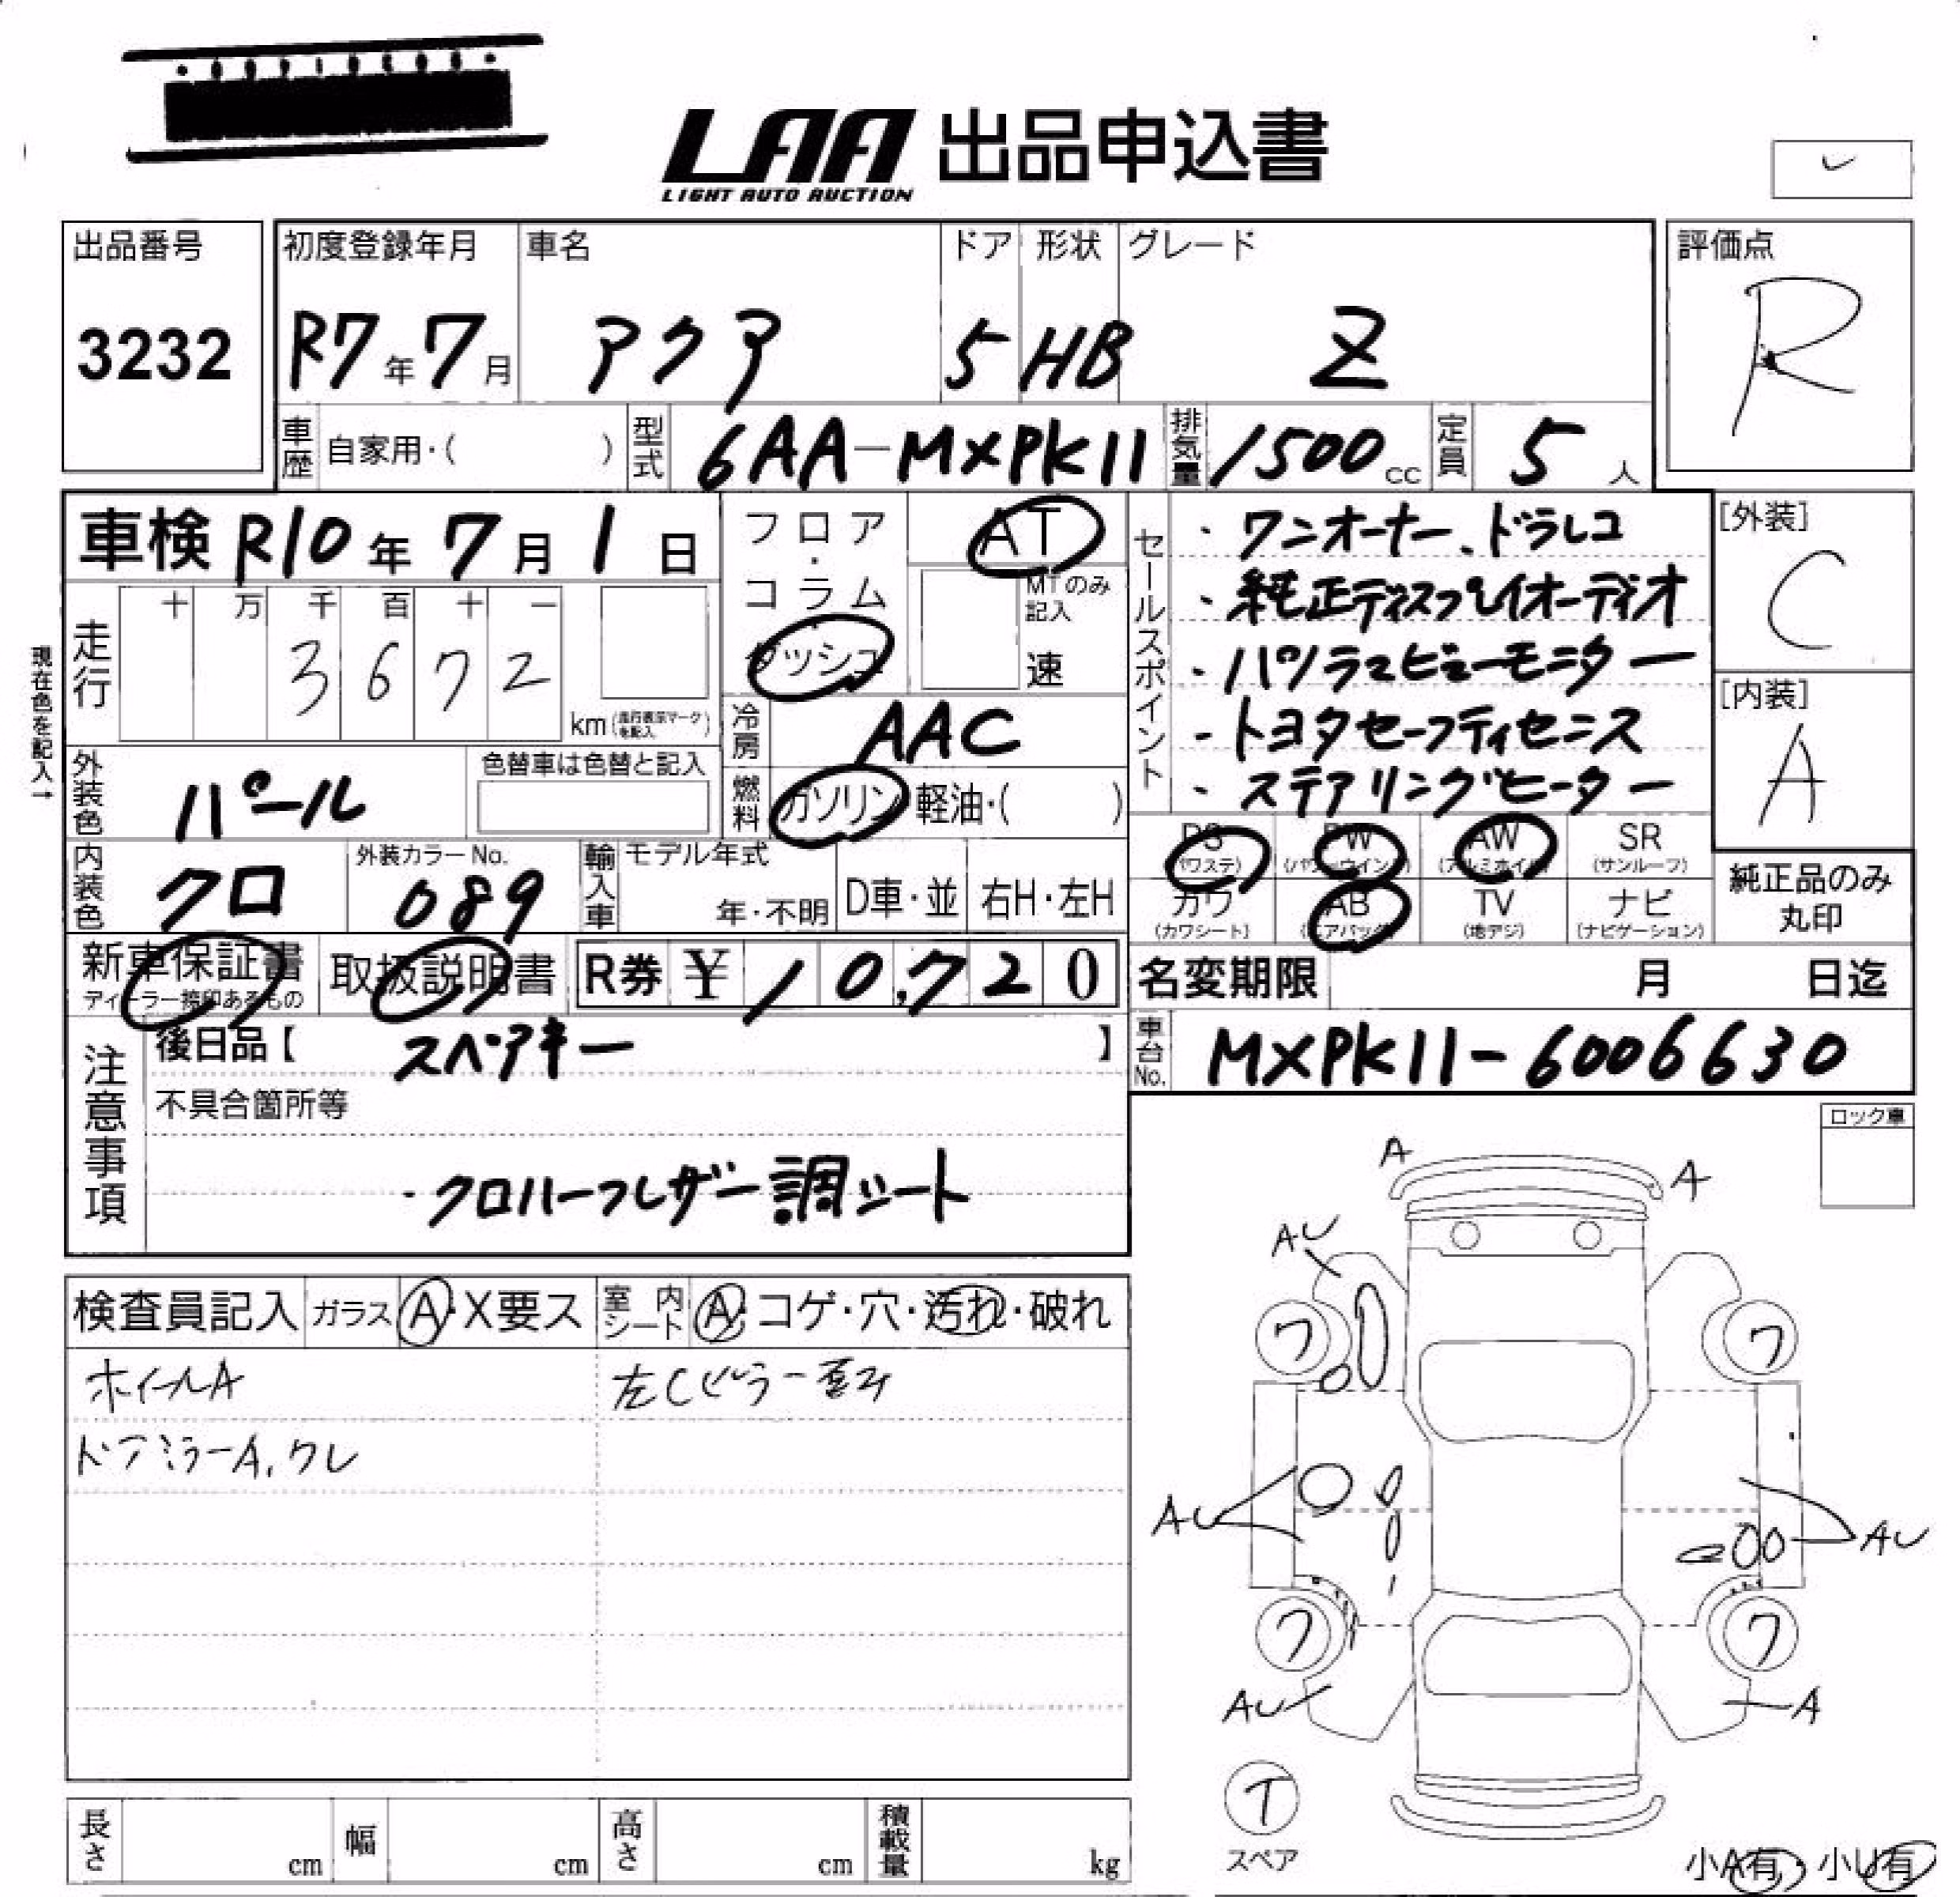 LAA 出品申込書
LIGHT AUTO AUCTION
出品番号
3232
初度登録年月
R7年7月
車名
アクア
ドア
5
形状
HB
グレード
Z
評価点
R
車歴
自家用・( )
型式
6AA-MXPK11
排気量
1500cc
定員
5人
車検 R10年7月1日
フロア・コラム
ダッシュ
AT
MTのみ記入
速
セールスポイント
・ワンオーナー、ドラレコ
・純正ディスプレイオーディオ
・パノラマビューモニター
・トヨタセーフティセンス
・ステアリングヒーター
[外装]
C
[内装]
A
現在色を記入→
走行
十 万 千 百 十 一
3 6 7 2
km(走行表示マークを記入)
冷房
AAC
外装色
パール
色替車は色替と記入
燃料
ガソリン・軽油・( )
内装色
クロ
外装カラーNo.
089
輸入車
モデル年式
年・不明
D車・並
右H・左H
PS
(パワステ)
PW
(パワーウインド)
AW
(アルミホイル)
SR
(サンルーフ)
カワ
(カワシート)
AB
(エアバック)
TV
(地デジ)
ナビ
(ナビゲーション)
純正品のみ
丸印
新車保証書
ディーラー捺印あるもの
取扱説明書
R券 ¥10,720
名変期限 月 日迄
車台No.
MXPK11-6006630
注意事項
後日品【 スペアキー 】
不具合箇所等
・クロハーフレザー調シート
ロック車
検査員記入
ガラス A・X要ス
室内シート A・コゲ・穴・汚れ・破れ
ホイールA
左Cピラー歪み
ドアミラーA,ワレ
A
A
AU
ワ
ワ
AU
AU
ワ
ワ
AU
A
T
スペア
小A有・小U有
長さ cm
幅 cm
高さ cm
積載量 kg